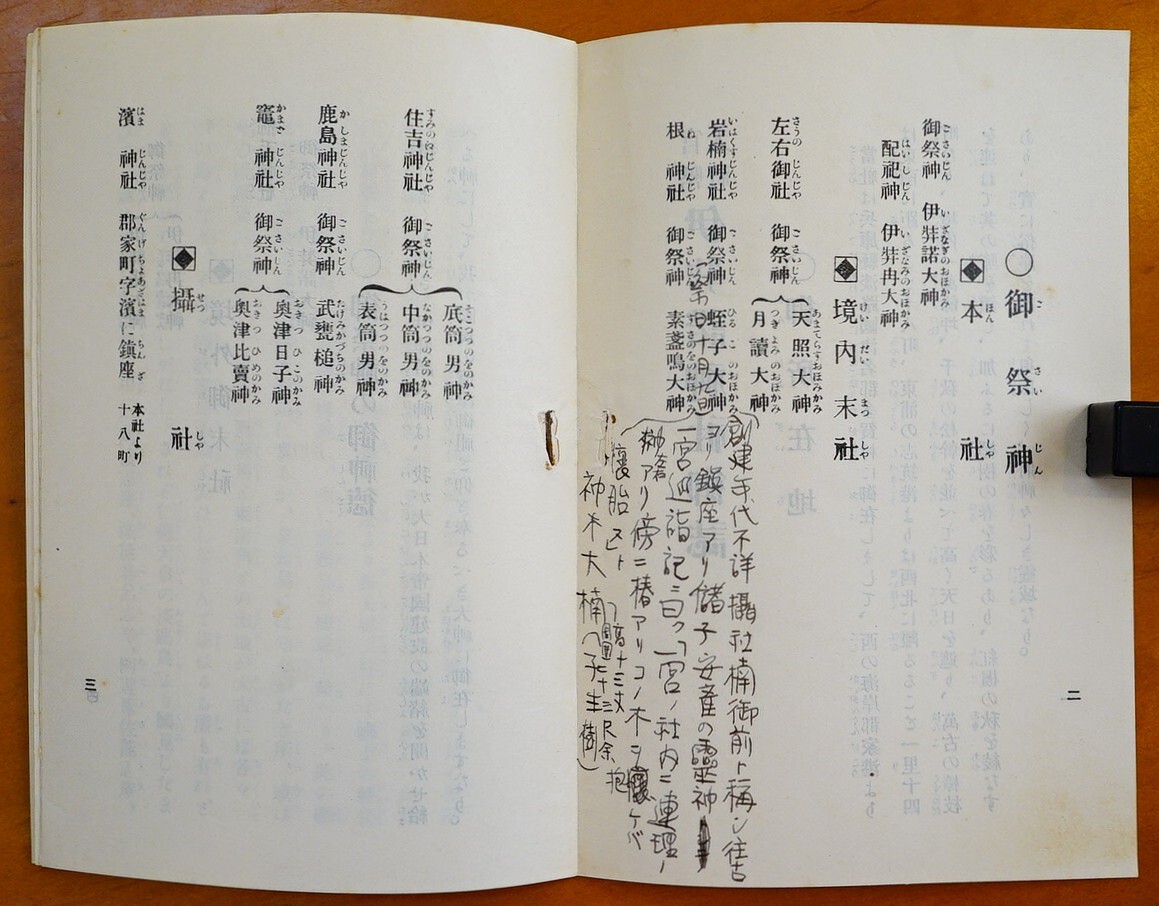 ○御祭神
本社
御祭神 伊弉諾大神
配祀神 伊弉冉大神
境内末社
左右御社 御祭神 天照大神
月讀大神
岩楠神社 御祭神 蛭子大神
根神社 御祭神 素盞嗚大神
祭日十月九日
創建年代不詳攝社楠御前ト稱シ往古
ヨリ鎮座アリ儲子安産の靈神
一宮巡詣記ニ曰ク「一宮ノ社内ニ連理ノ
楠アリ傍ニ椿アリコノ木ヲ懐ケバ
懐胎スト
高十三丈
周囲二十三尺余
神木大楠(子生樹)
二
住吉神社 御祭神 底筒男神
中筒男神
表筒男神
鹿島神社 御祭神 武甕槌神
竈神社 御祭神 奧津日子神
奧津比賣神
攝社
濱神社 郡家町字濱に鎮座 本社より十八町
三